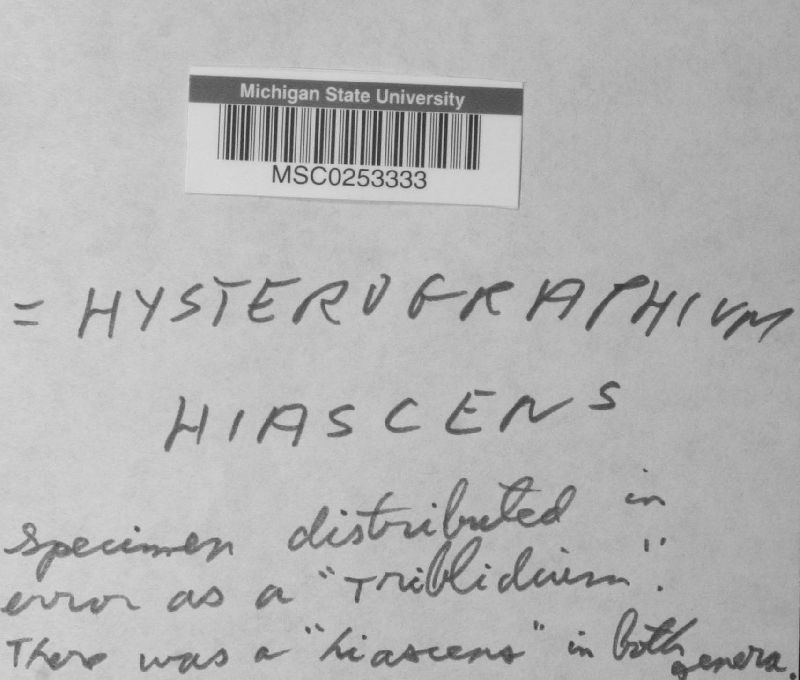 Michigan State University
MSC0253333
= HYSTEROGRAPHIUM
HIASCENS
specimen distributed in
error as a "Triblidium".
There was a "hiascens" in both genera.